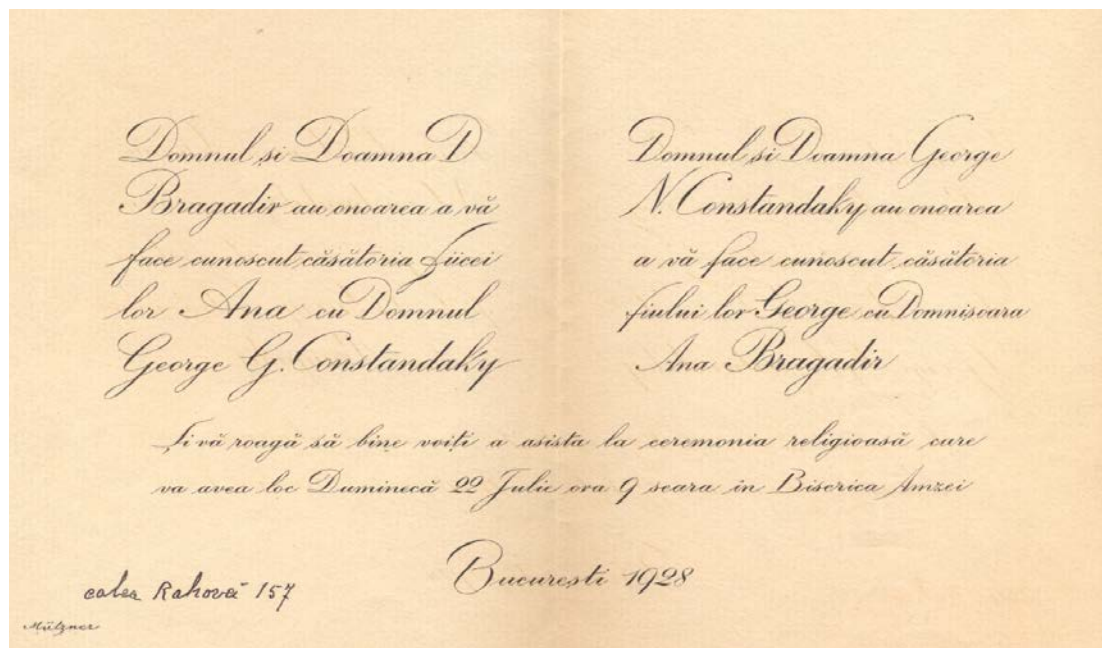 Domnul și Doamna D
Bragadir au onoarea a vă
face cunoscut căsătoria fiicei
lor Ana cu Domnul
George G. Constandaky
Domnul și Doamna George
N. Constandaky au onoarea
a vă face cunoscut căsătoria
fiului lor George cu Domnișoara
Ana Bragadir
Și vă roagă să bine voiți a asista la ceremonia religioasă care
va avea loc Duminecă 22 Julie ora 9 seara în Biserica Amzei
București 1928
calea Rahovă 157
Mützner